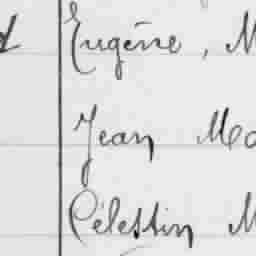 Eugène, M
Jean Ma
Célestin M